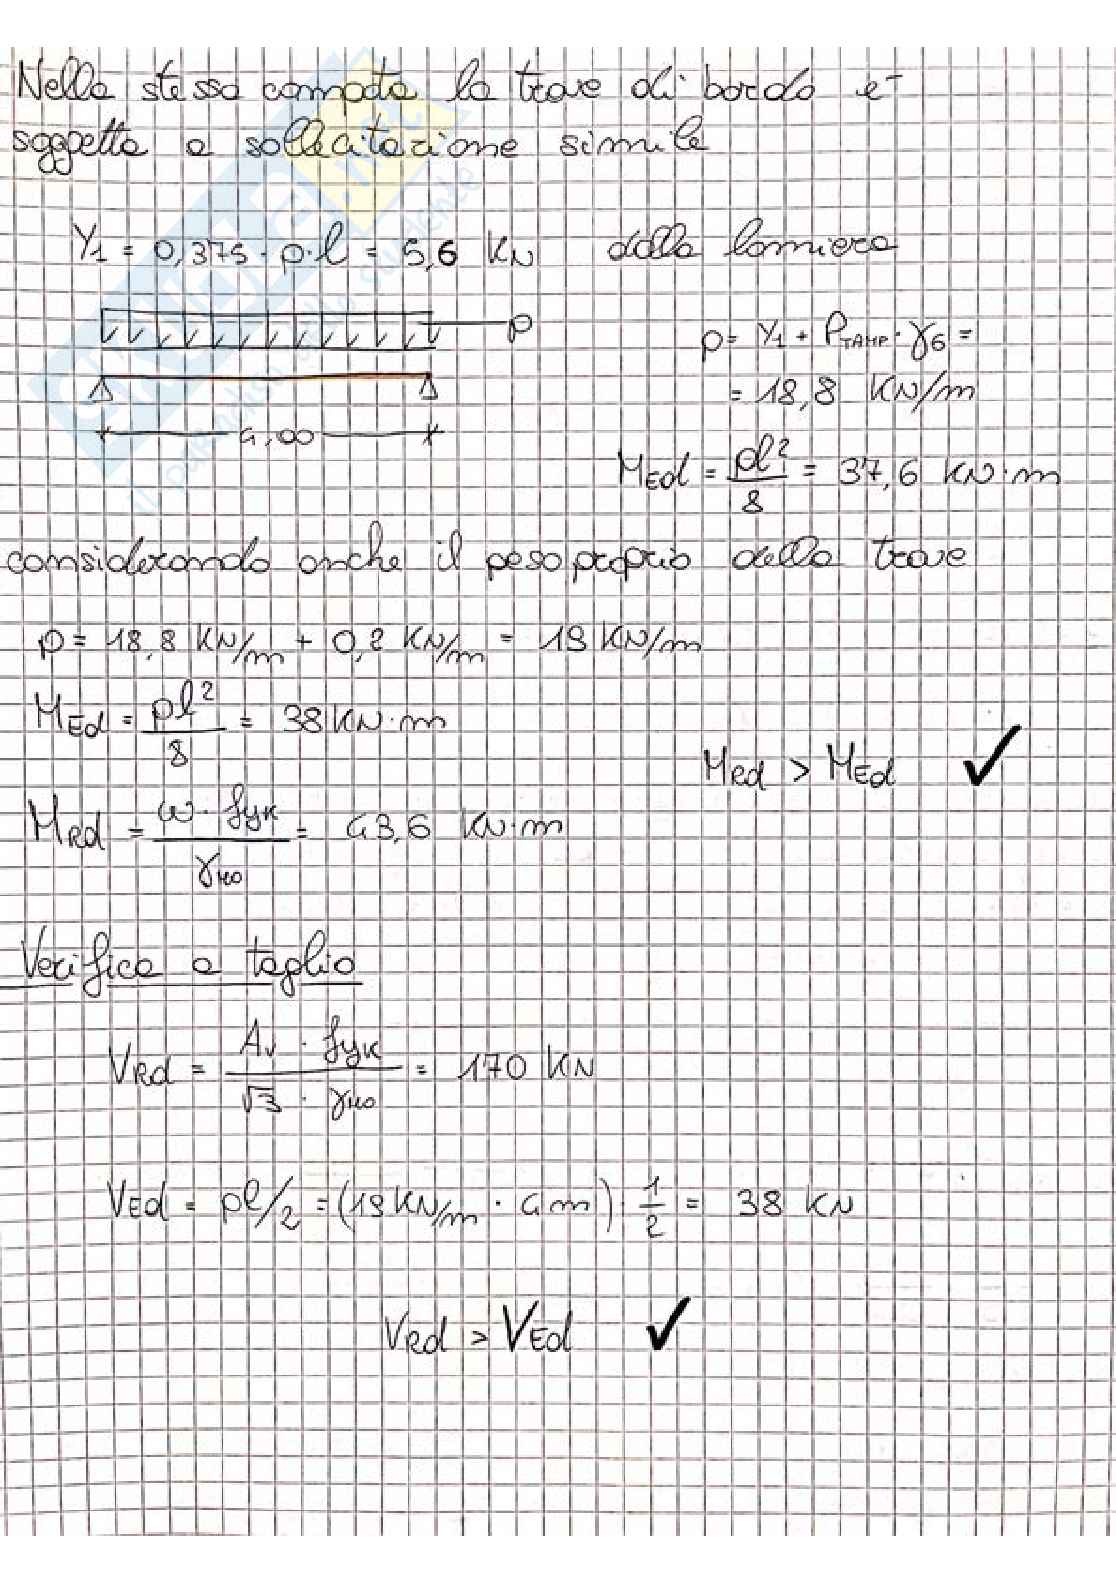 Nella stessa campata la trave di bordo e'
soggetta a sollecitazione simile
Y1 = 0,375 · p·l = 5,6 KN dalla lamiera
p
p = Y1 + PTAMP · γG =
= 18,8 KN/m
4,00
MEd = pl²/8 = 37,6 KN·m
considerando anche il peso proprio della trave
p = 18,8 KN/m + 0,2 KN/m = 19 KN/m
MEd = pl²/8 = 38 KN·m
MRd > MEd ✓
MRd = W · fyk / γM0 = 43,6 KN·m
Verifica a taglio
VRd = Av · fyk / √3 · γM0 = 170 KN
VEd = pl/2 = (19 KN/m · 4 m) · 1/2 = 38 KN
VRd > VEd ✓